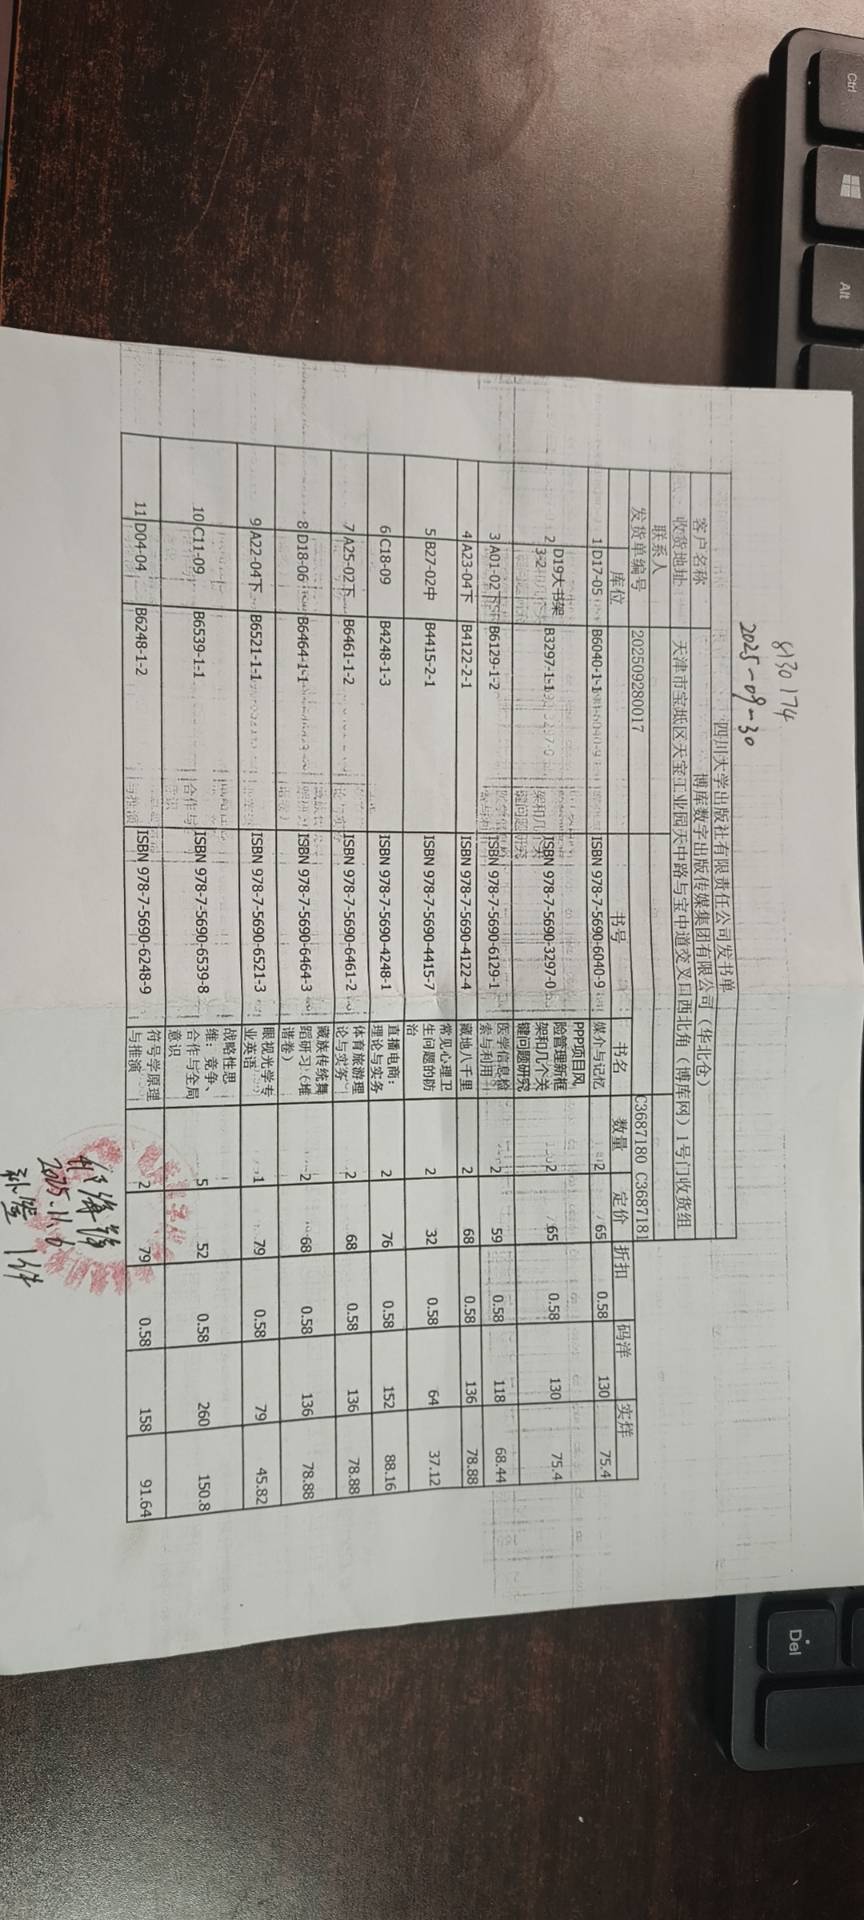 8130174
2025-09-30
四川大学出版社有限责任公司发书单
客户名称 博库数字出版传媒集团有限公司（华北仓）
收货地址 天津市宝坻区天宝工业园天中路与宝中道交叉口西北角（博库网）1号门收货组
联系人
发货单编号 202509280017 C3687180 C3687181
库位 书号 书名 数量 定价 折扣 码洋 实洋
1 D17-05 B6040-1-1 ISBN 978-7-5690-6040-9 媒介与记忆 2 65 0.58 130 75.4
2 D19大书架3-2 B3297-1-1 ISBN 978-7-5690-3297-0 PPP项目风险管理新框架和几个关键问题研究 2 65 0.58 130 75.4
3 A01-02下 B6129-1-2 ISBN 978-7-5690-6129-1 医学信息检索与利用 2 59 0.58 118 68.44
4 A23-04下 B4122-2-1 ISBN 978-7-5690-4122-4 藏地八千里 2 68 0.58 136 78.88
5 B27-02中 B4415-2-1 ISBN 978-7-5690-4415-7 常见心理卫生问题的防治 2 32 0.58 64 37.12
6 C18-09 B4248-1-3 ISBN 978-7-5690-4248-1 直播电商：理论与实务 2 76 0.58 152 88.16
7 A25-02下 B6461-1-2 ISBN 978-7-5690-6461-2 体育旅游理论与实务 2 68 0.58 136 78.88
8 D18-06 B6464-1-1 ISBN 978-7-5690-6464-3 藏族传统舞蹈研习（堆谐卷） 2 68 0.58 136 78.88
9 A22-04下 B6521-1-1 ISBN 978-7-5690-6521-3 眼视光学专业英语 1 79 0.58 79 45.82
10 C11-09 B6539-1-1 ISBN 978-7-5690-6539-8 战略性思维：竞争、合作与全局意识 5 52 0.58 260 150.8
11 D04-04 B6248-1-2 ISBN 978-7-5690-6248-9 符号学原理与推演 2 79 0.58 158 91.64
2025.11.6
补签 1件
Ctrl
Alt
Del